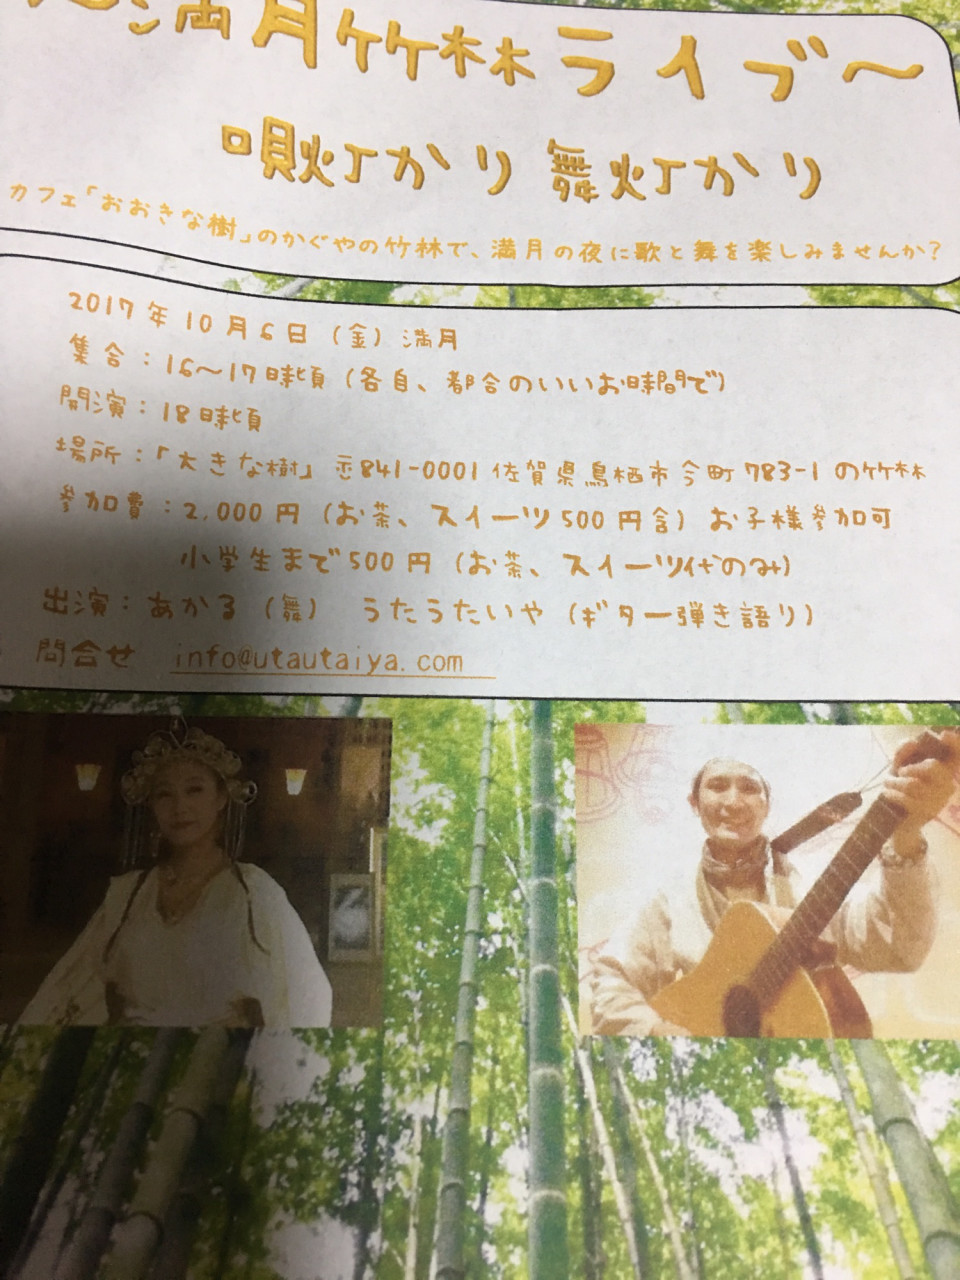 満月竹林ライブ～
唄灯かり 舞灯かり
カフェ「おおきな樹」のかぐやの竹林で、満月の夜に歌と舞を楽しみませんか？
2017年10月6日（金）満月
集合：16～17時頃（各自、都合のいいお時間で）
開演：18時頃
場所：「大きな樹」〠841-0001 佐賀県鳥栖市今町783-1 の竹林
参加費：2,000円（お茶、スイーツ500円含） お子様参加可
小学生まで500円（お茶、スイーツ代のみ）
出演：あかる（舞） うたうたいや（ギター弾き語り）
問合せ info@utautaiya.com